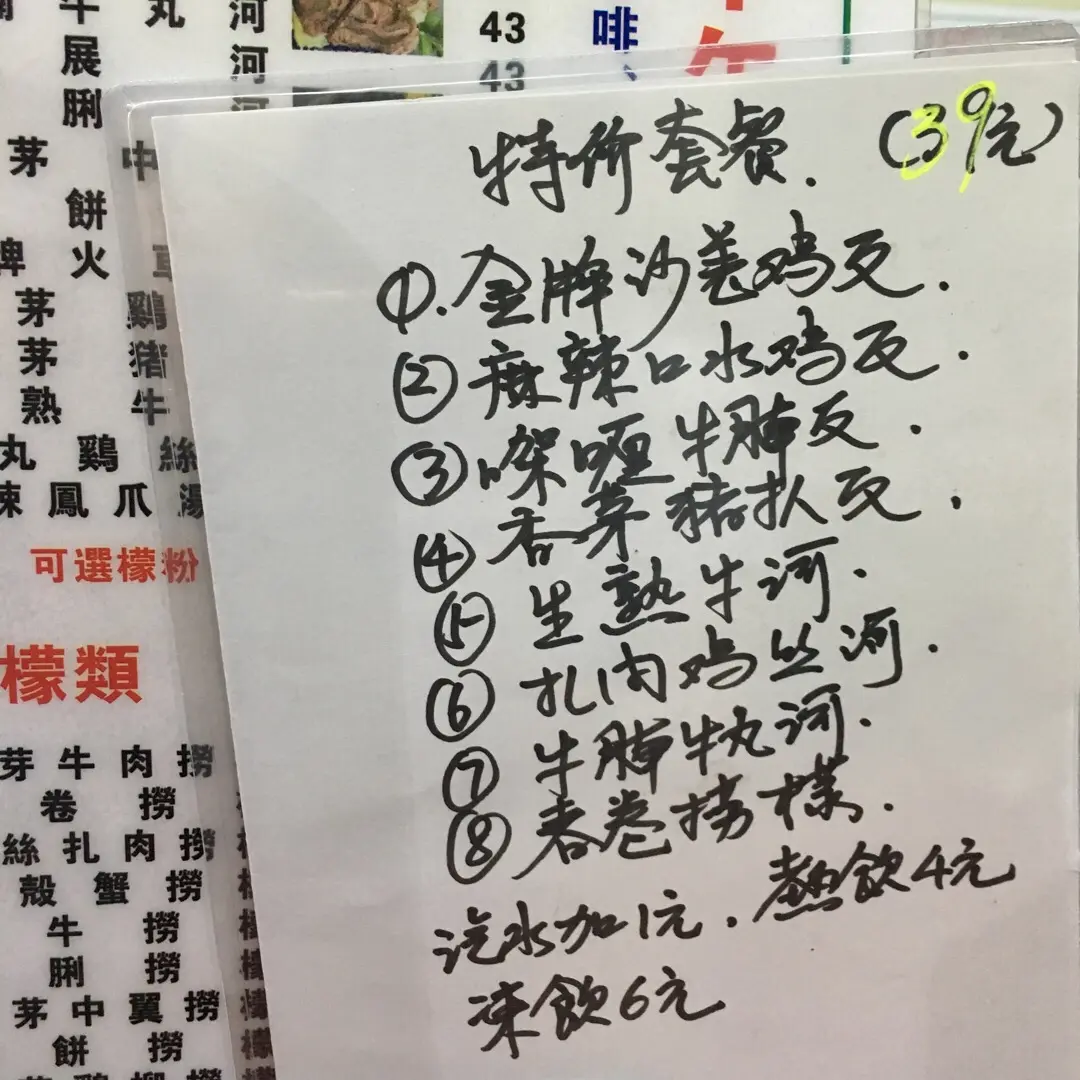 牛 丸 河
展 河
脷 河
茅 中
餅
牌 火
茅 鷄
茅 猪
熟 牛
丸 鷄 絲
辣 鳳 爪 湯
可選檬粉
檬類
芽 牛 肉 撈
卷 撈
絲 扎 肉 撈
殼 蟹 撈
牛 撈
脷 撈
茅 中 翼 撈
餅 撈
43
43
啡
特价套餐. (39元)
①.金牌沙姜鸡反.
②麻辣口水鸡反.
③㗎喱牛腩反.
④香茅猪扒反.
⑤生熟牛河.
⑥扎肉鸡丝河.
⑦牛腩牛丸河.
⑧春卷捞檬.
汽水加1元. 熱飲4元
凍飲6元